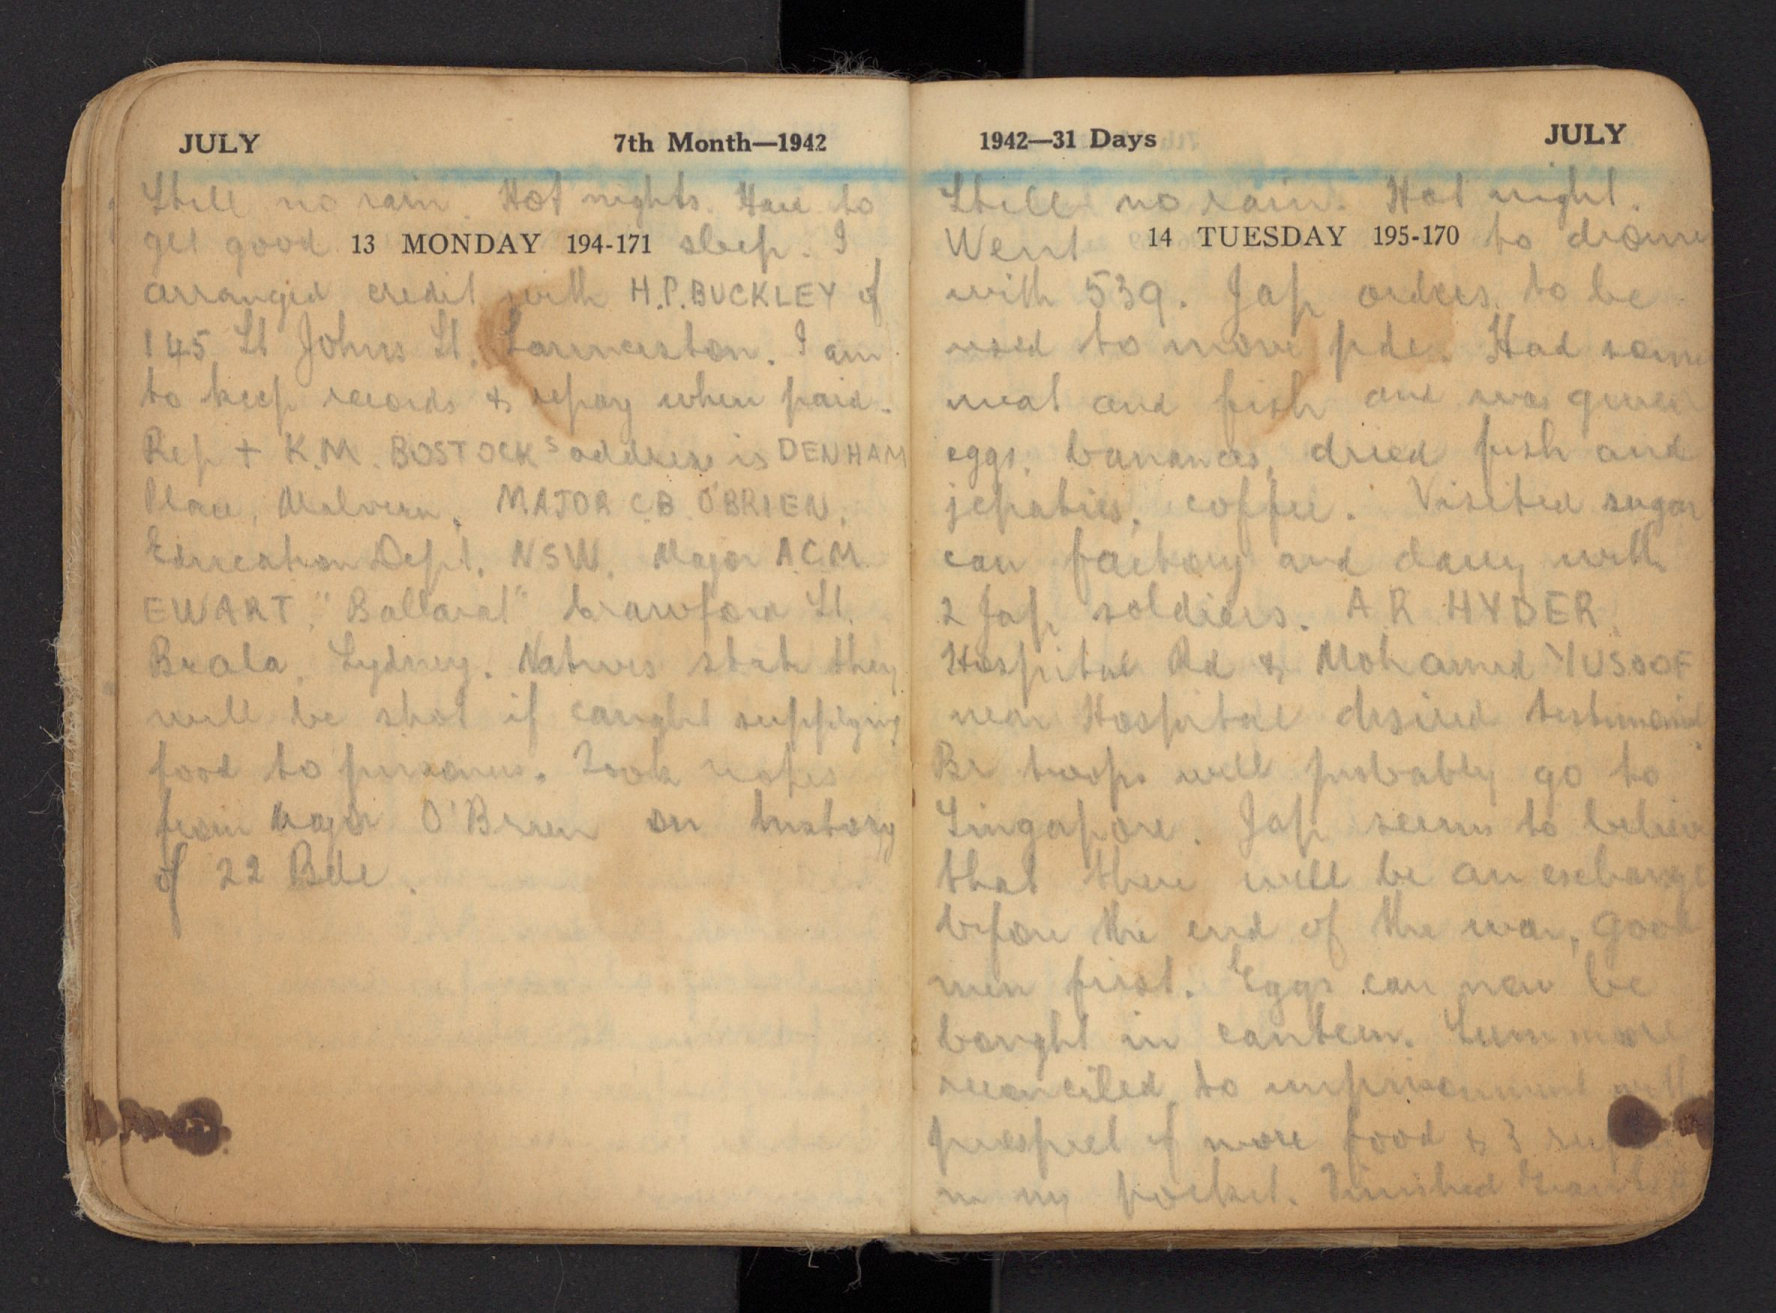 JULY 7th Month—1942
Still no rain. Hot nights. Hard to
get good 13 MONDAY 194-171 sleep. I
arranged credit with H.P. BUCKLEY of
145 St Johns St. Launceston. I am
to keep records & repay when paid.
K.M. BOSTOCK's address is DENHAM
Place, Malvern. MAJOR C.B. O'BRIEN,
Education Dept, NSW. Major A.C.M.
EWART, "Ballarat" Crawford St.
Berala, Sydney. Natives state they
will be shot if caught supplying
food to prisoners. Took notes
from Major O'Brien on history
of 22 Bde.
1942—31 Days JULY
Still no rain. Hot night.
Went 14 TUESDAY 195-170 to drome
with 539. Jap orders to be
used to move pde. Had some
meat and fish and was given
eggs, bananas, dried fish and
coffee. Visited sugar
can factory and dairy with
2 Jap soldiers. A R HYDER,
Hospital Rd & Mohamed YUSOOF
near Hospital desired testimonial
Br troops will probably go to
Singapore. Jap seems to believe
that there will be an exchange
before the end of the war, good
men first. Eggs can now be
bought in canteen. more
reconciled to imprisonment with
prospect of more food & 3
in my pocket. Finished